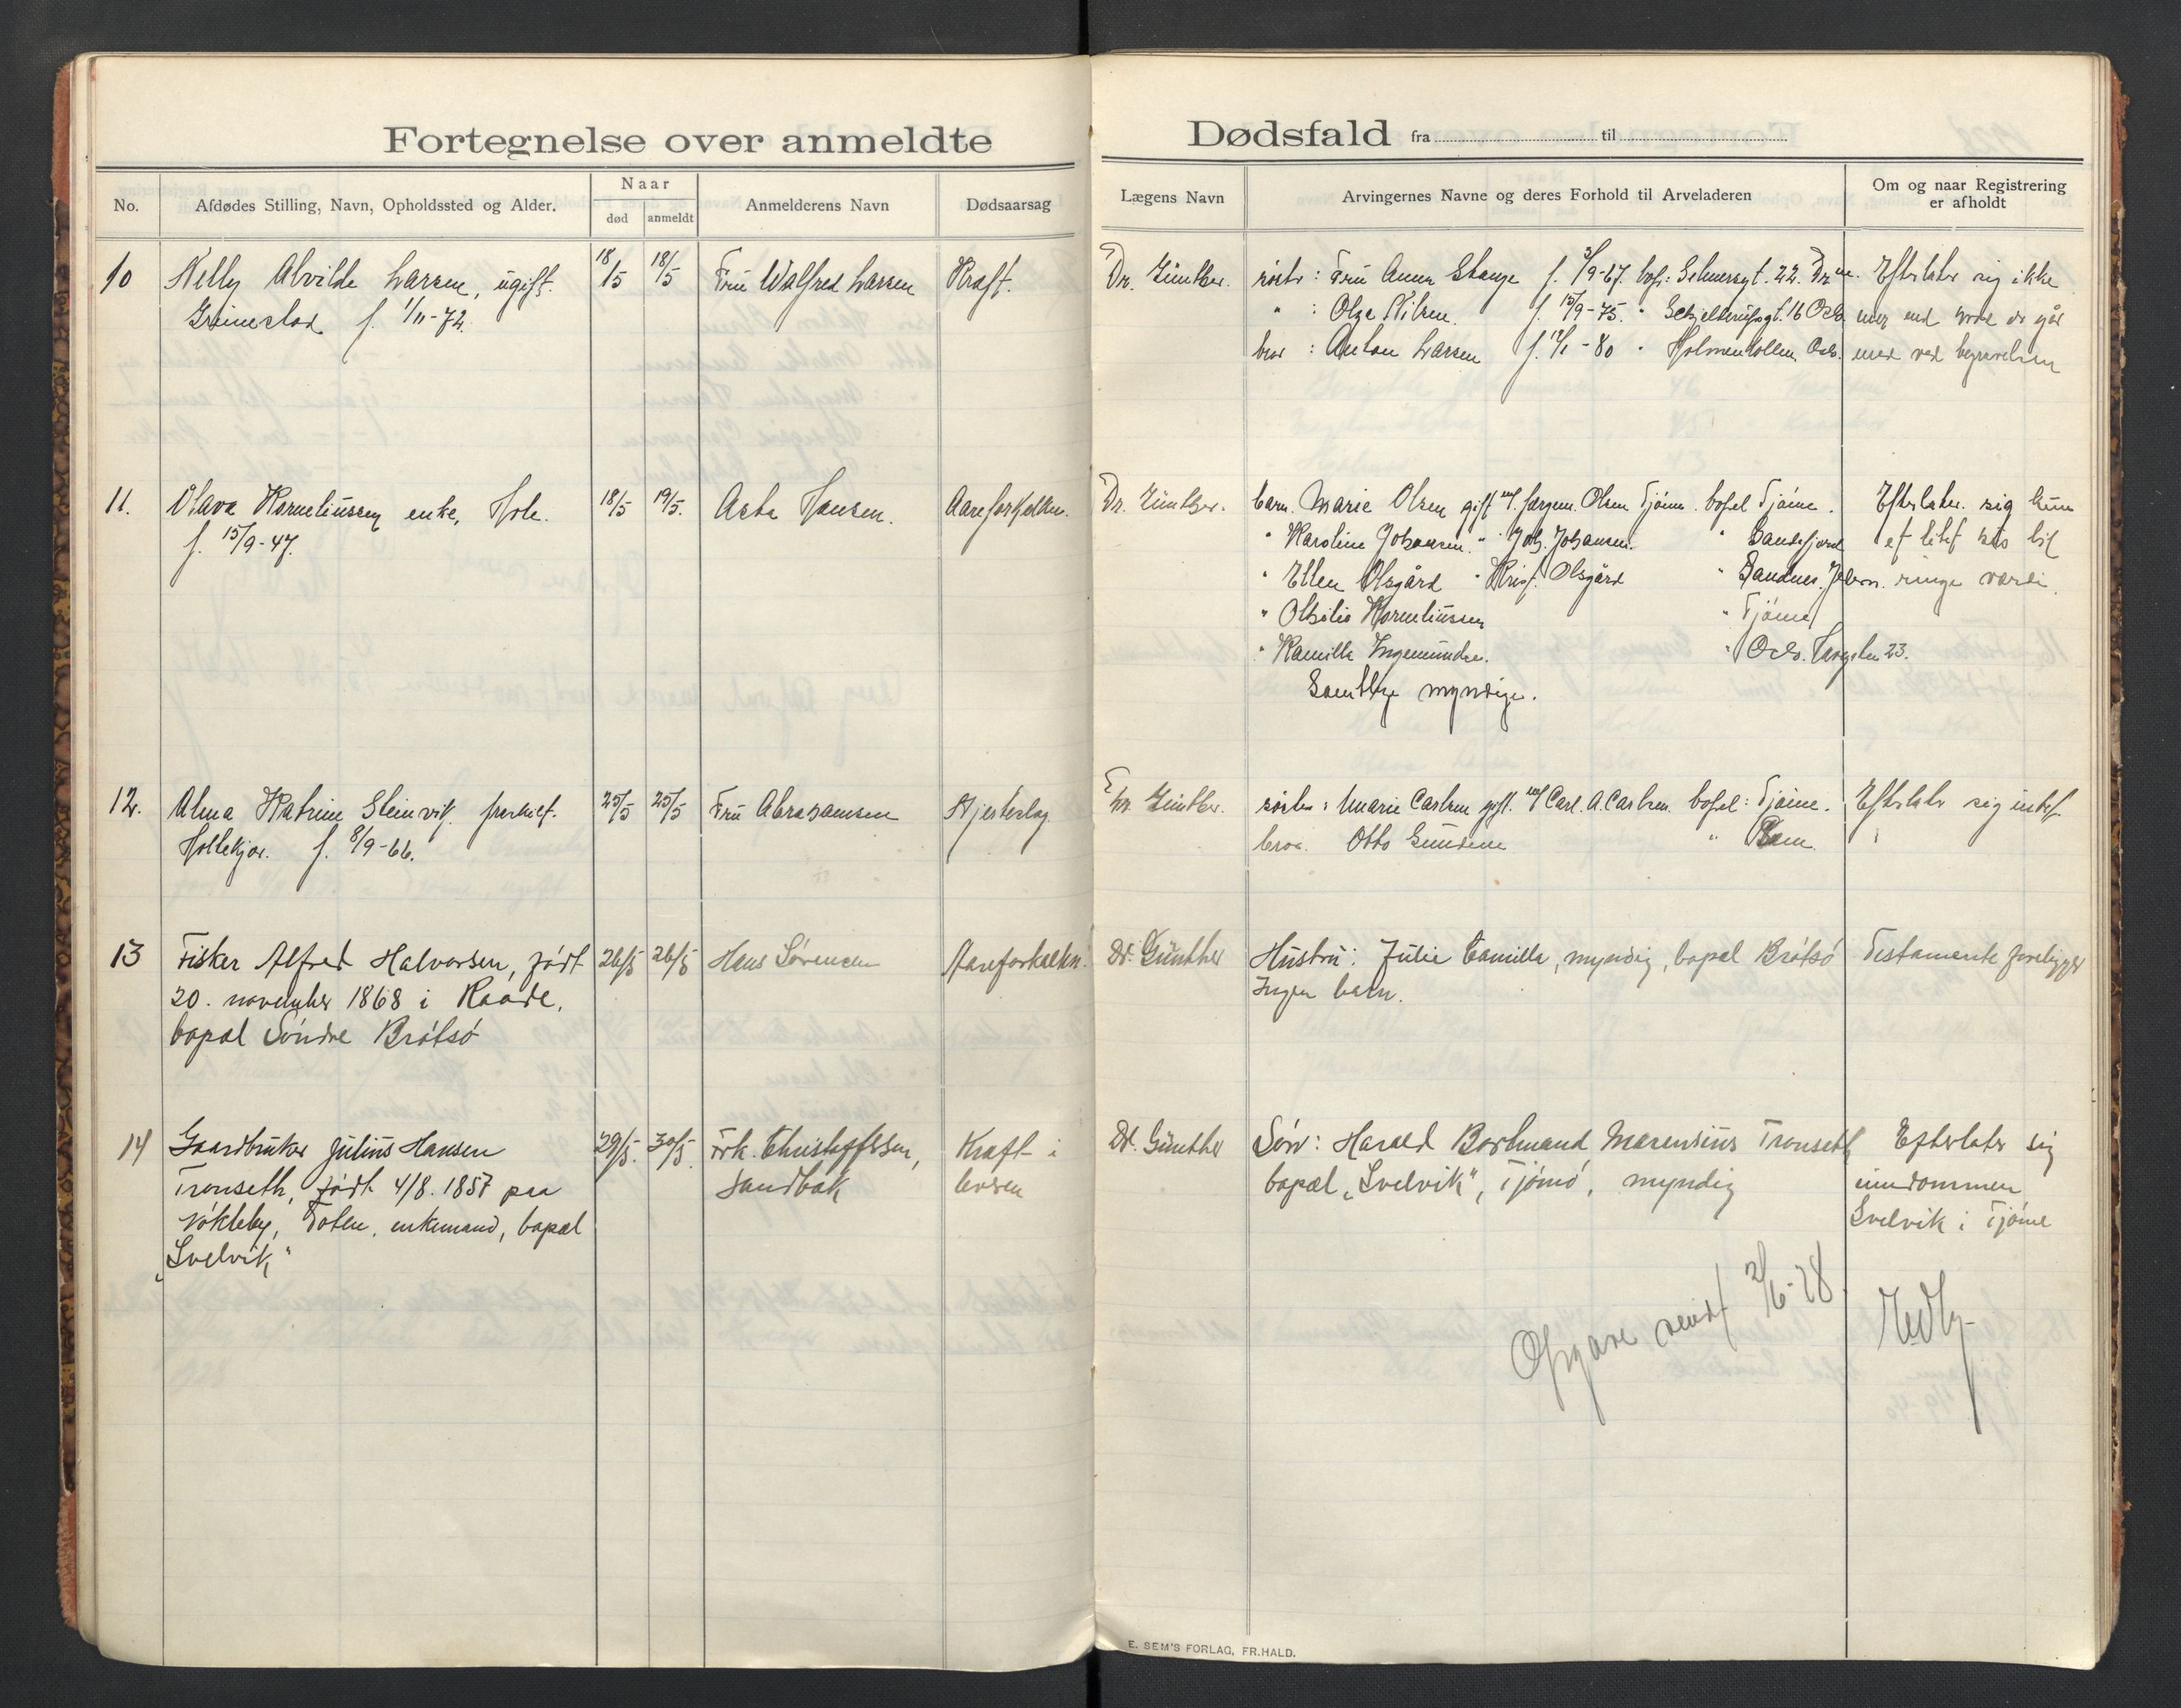 Fortegnelse over anmeldte Dødsfald fra til
No. Afdødes Stilling, Navn, Opholdssted og Alder. Naar død anmeldt Anmelderens Navn Dødsaarsag Lægens Navn Arvingernes Navne og deres Forhold til Arveladeren Om og naar Registrering er afholdt
10 Nelly Alvilde Larsen, ugift. 18/5 18/5 Fru Walfred Larsen Kræft. Dr. Günther. søster: Fru Anna Stange f. 3/9-67. bos: 22. Drm. Efterlater sig ikke
Grimestad f. 1/11-72. " : Olga Nilsen. f. 15/9-75. " 16 Oslo mer end hvad der går
bror : Anton Larsen f. 12/1-80 " Holmenkollen Oslo. med ved begravelsen
11. Olava Korneliussen enke, Hole. 18/5 19/5. Asta Hansen. Aareforkalkn. Dr. Günther. barn. Marie Olsen gift m/ Jørgen Olsen Tjøme. bopel Tjøme. Efterlater sig kun
f. 15/9-47. " Karoline Johansen. " Joh. Johansen. " Sandefjord et litet hus til
" Ellen Olsgård " Krist. Olsgård " Sandnes, Jæren. ringe værdi.
" Othilie Korneliussen " Tjøme
" Kamilla Ingemundsen. " Oslo. 23.
Samtlige myndige.
12. Alma Katrine Steinvik, fraskilt. 25/5 25/5 Fru Abrahamsen Hjerteslag Dr. Günther. søster: Marie Carlsen gift. m/ Carl. A. Carlsen. bopel: Tjøme. Efterlater sig intet.
f. 8/9-66. bror. Otto Gundersen "
13 Fisker Alfred Halvorsen, født 26/5 26/5 Hans Sørensen Aareforkalkn. Dr. Günther Hustru: Julie Camilla, myndig, bopæl Brøtsø Testamente foreligger
20. november 1868 i Raade, Ingen barn.
bopæl Søndre Brøtsø
14 Gaardbruker Julius Hansen 29/5. 30/5. Frk. Christoffersen, Kræft i Dr. Günther Søn: Harald Bormand Marensius Tronseth Efterlater sig
Tronseth, født 4/8. 1857 paa Sandbæk leveren bopæl „Svelvik", Tjømø, myndig eiendommen
Vøkleby, Toten, enkemand, bopæl Svelvik i Tjøme
„Svelvik"
Opgave sendt 2/6-28
E. SEM'S FORLAG, FR.HALD.